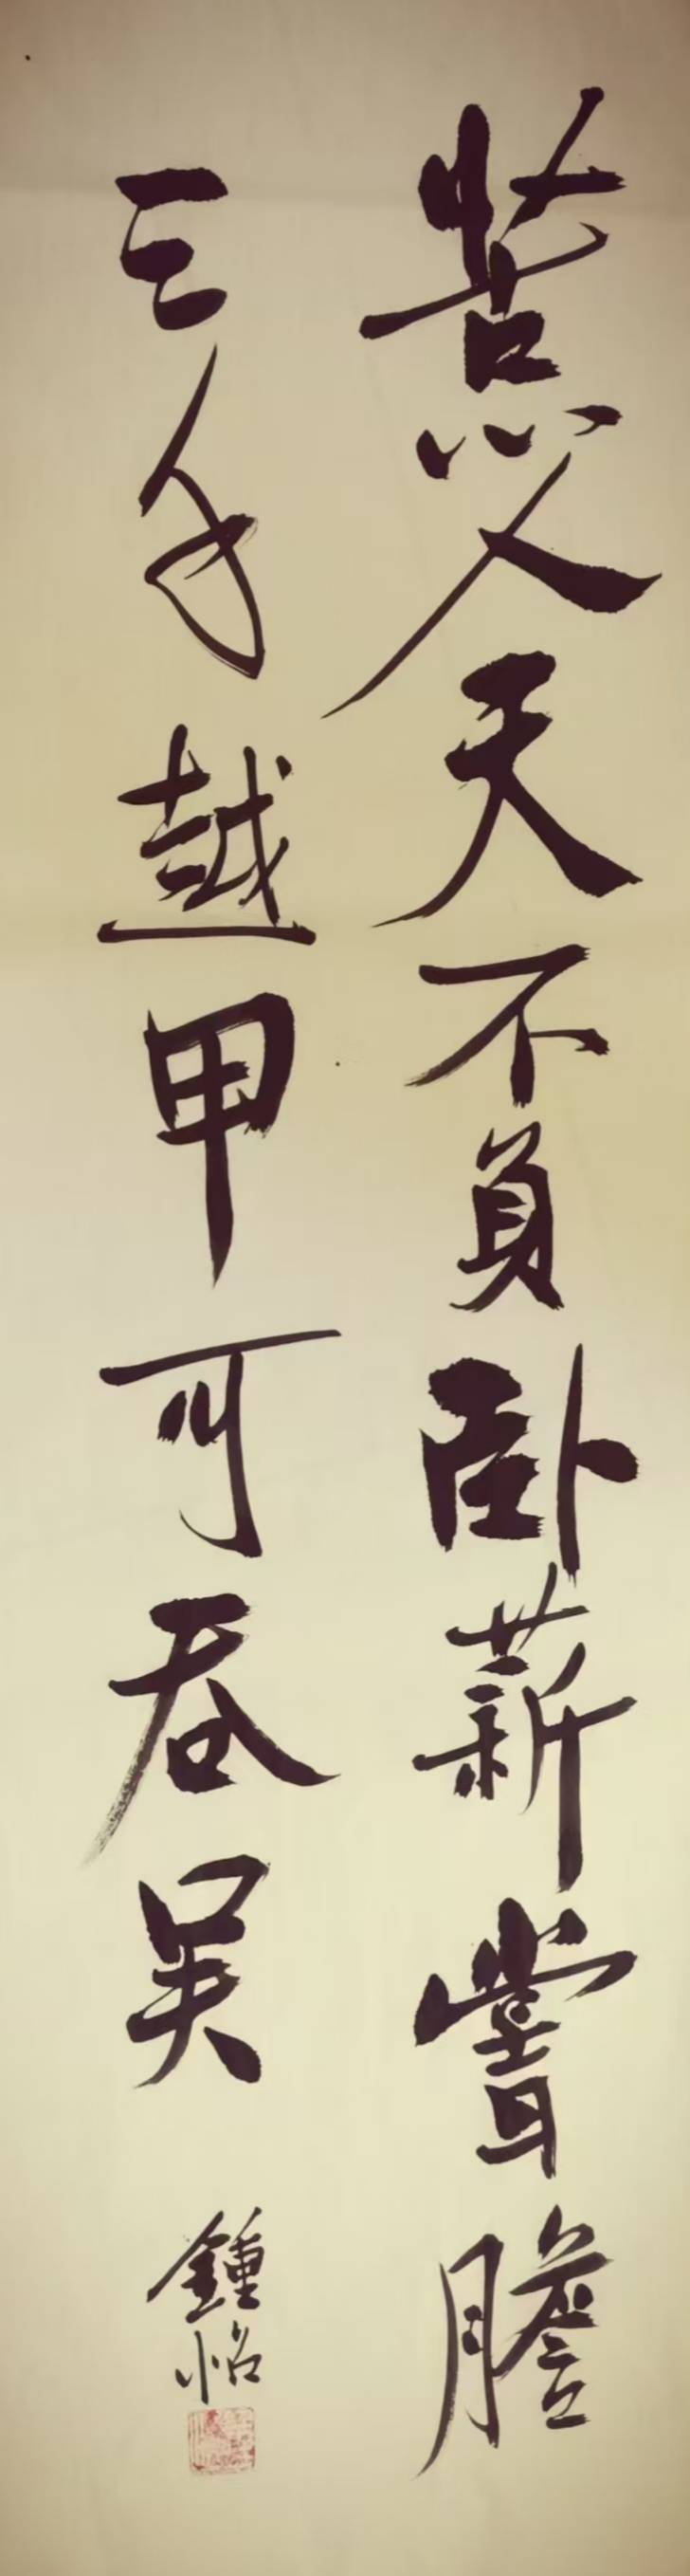 苦心人天不負卧薪嘗膽
三千越甲可吞吴
鍾